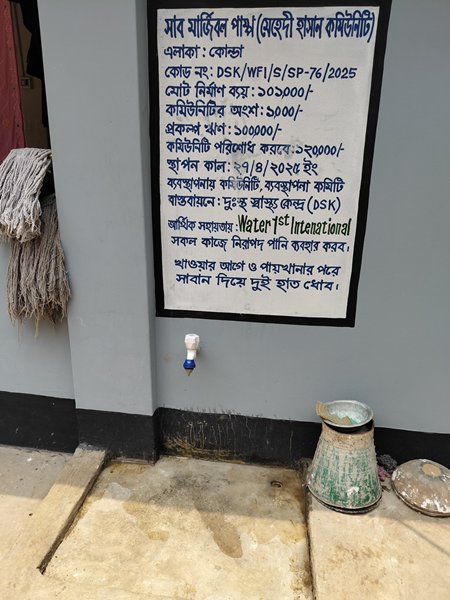 সাব মার্জিবল পাম্প (মেহেদী হাসান কমিউনিটি)
এলাকা : কোন্ডা
কোড নং : DSK/WFI/S/SP-76/2025
মোট নির্মাণ ব্যয় : ১০১০০০/-
কমিউনিটির অংশ : ১০০০/-
প্রকল্প ঋণ : ১০০০০০/-
কমিউনিটি পরিশোধ করবে : ১২০০০০/-
স্থাপন কাল : ২৭/৪/২০২৫ ইং
ব্যবস্থাপনায় কমিউনিটি, ব্যবস্থাপনা কমিটি
বাস্তবায়নে : দুঃস্থ স্বাস্থ্য কেন্দ্র (DSK)
আর্থিক সহায়তায় : Water 1st Intenational
সকল কাজে নিরাপদ পানি ব্যবহার করব।
খাওয়ার আগে ও পায়খানার পরে
সাবান দিয়ে দুই হাত ধোব।